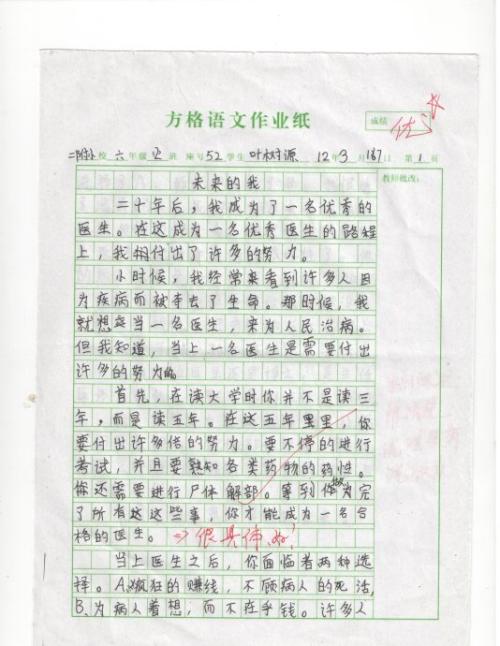 方格语文作业纸
成绩 优
二附小校 六年级 班 座号52 学生 叶树源 12年3月 日 第1页
教师批改：
未来的我
二十年后，我成为了一名优秀的
医生。在这成为一名优秀医生的路程
上，我付出了许多的努力。
小时候，我经常来看到许多人因
为疾病而被夺去了生命。那时候，我
就想当一名医生，来为人民治病。
但我知道，当上一名医生是需要付出
许多的努力。
首先，在读大学时你并不是读三
年，而是读五年。在这五年里，你
要付出许多倍的努力。要不停的进行
考试，并且要熟知各类药物的药性。
你还需要进行尸体解部。等到你做完
了所有这这些事，你才能成为一名合
格的医生。⇒很具体，好！
当上医生之后，你面临者两种选
择。A、疯狂的赚钱，不顾病人的死活，
B、为病人着想，而不在乎钱。许多人